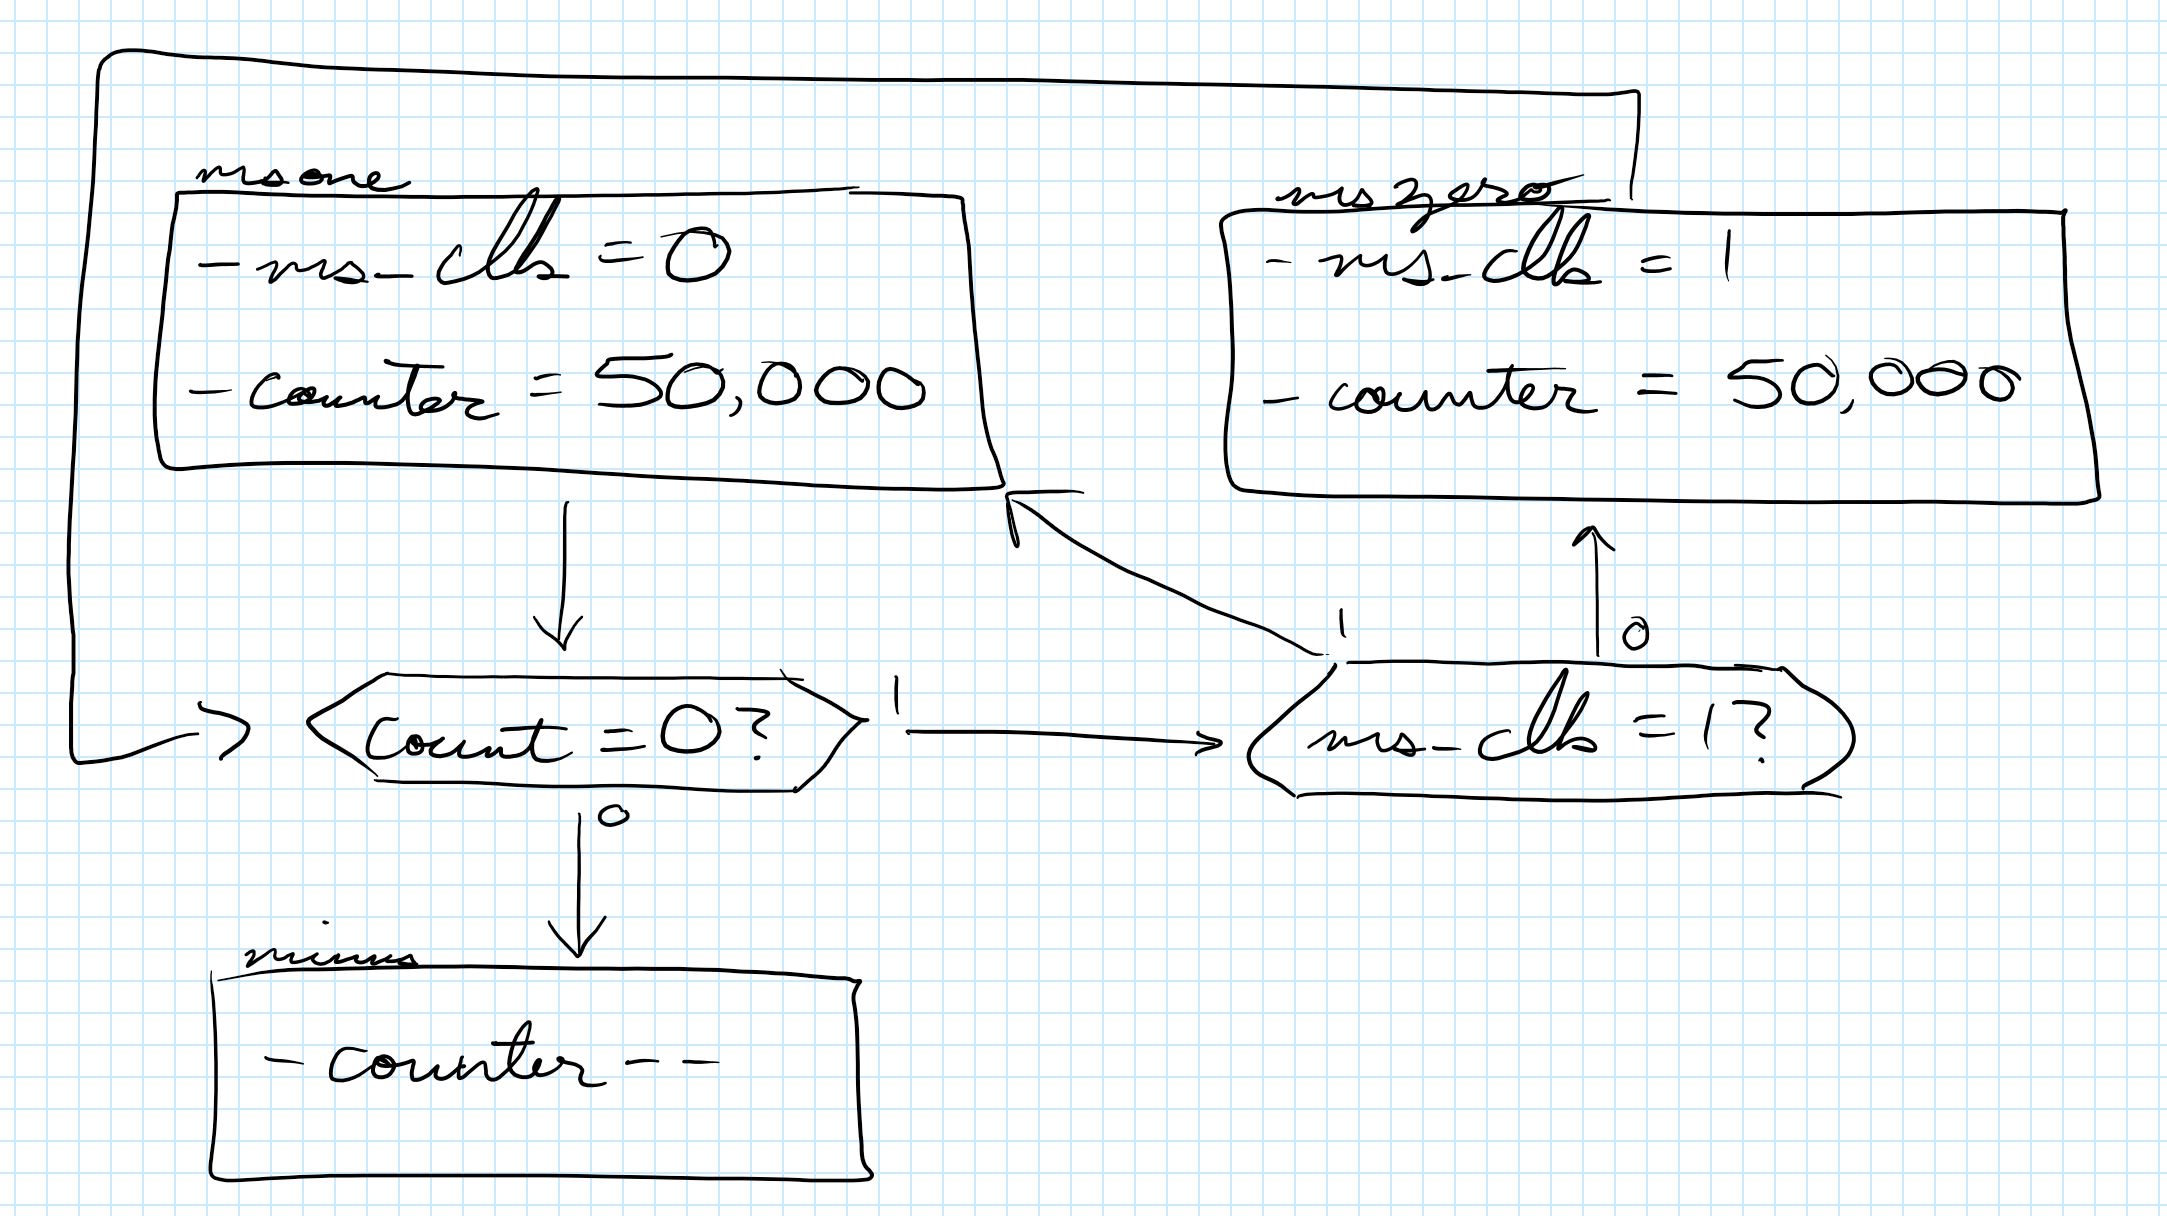 msone
- ms_clk = 0
- counter = 50,000
mszero
- ms_clk = 1
- counter = 50,000
count = 0?
1
0
ms_clk = 1?
1
0
minus
- counter --